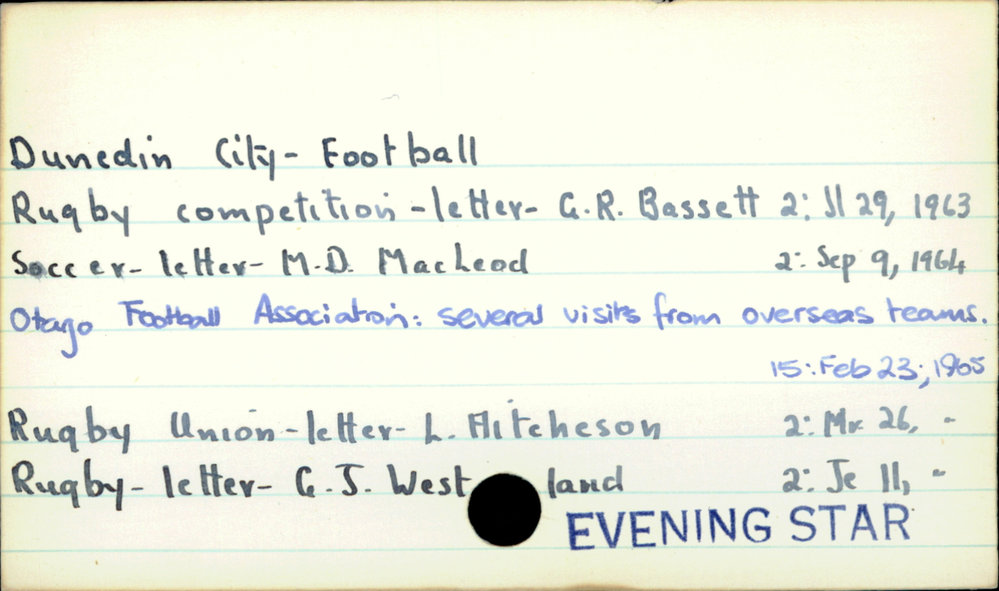 Dunedin City - Football
Rugby competition - letter - G.R. Bassett 2: Jl 29, 1963
Soccer - letter - M.D. MacLeod 2: Sep 9, 1964
Otago Football Association: several visits from overseas teams.
15: Feb 23; 1965
Rugby Union - letter - L. Aitcheson 2: Mr 26, -
Rugby - letter - G.J. Westland 2: Je 11, -
EVENING STAR